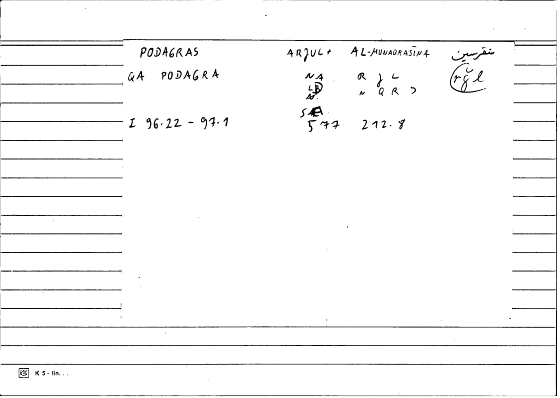 PODAGRAS ARJUL+ AL-MUNAQRASĪNA منقرسين
QA PODAGRA NA R J L rǧl
N Q R S
I 96.22 - 97.1 577 212.8
K 5 - lin. . .